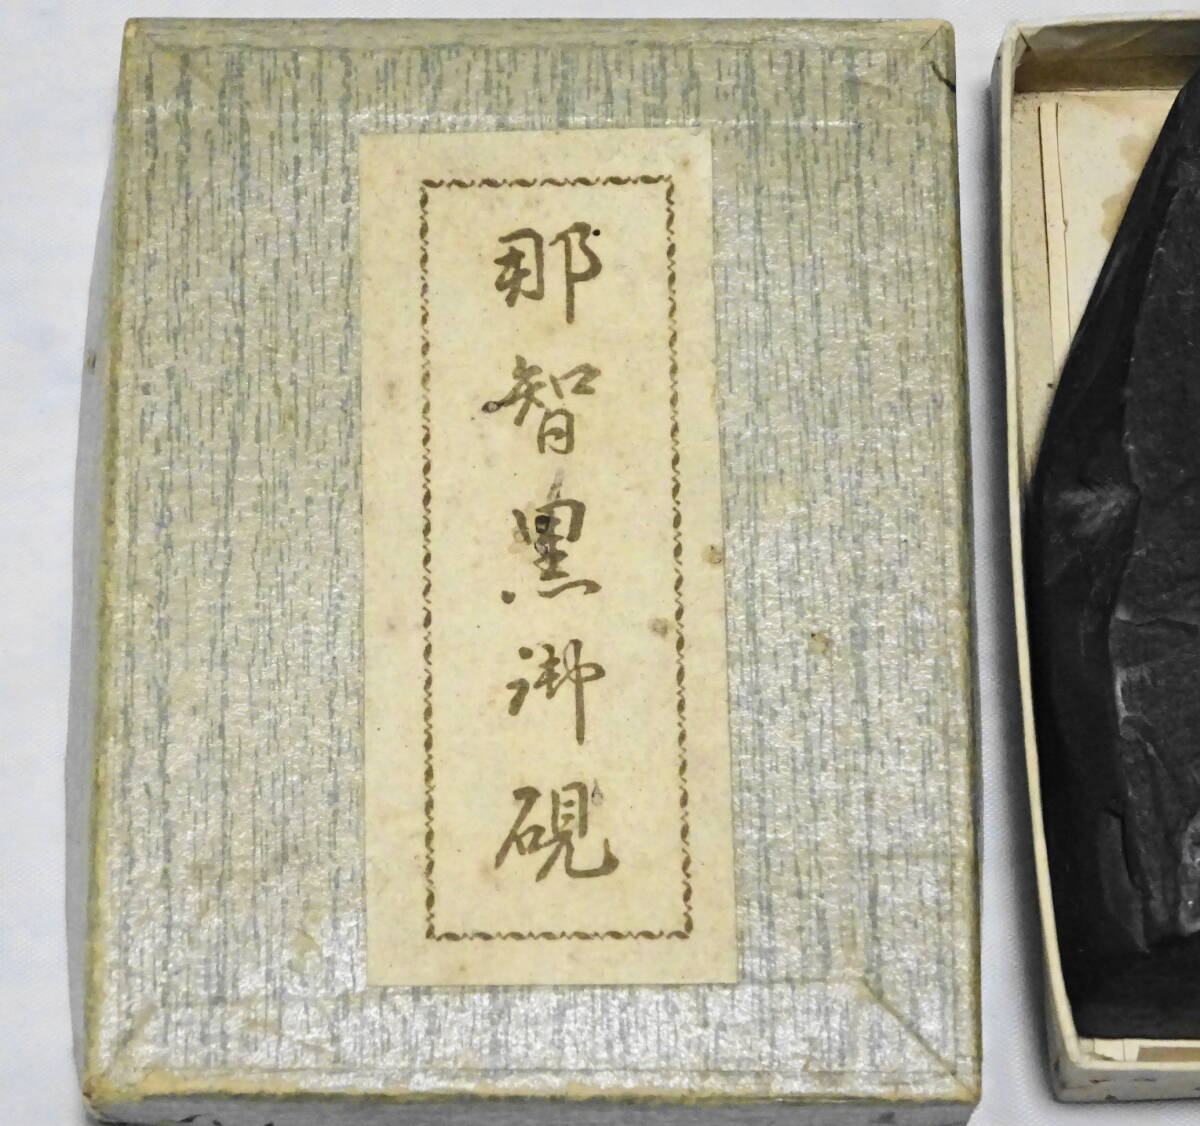 那智黒御硯